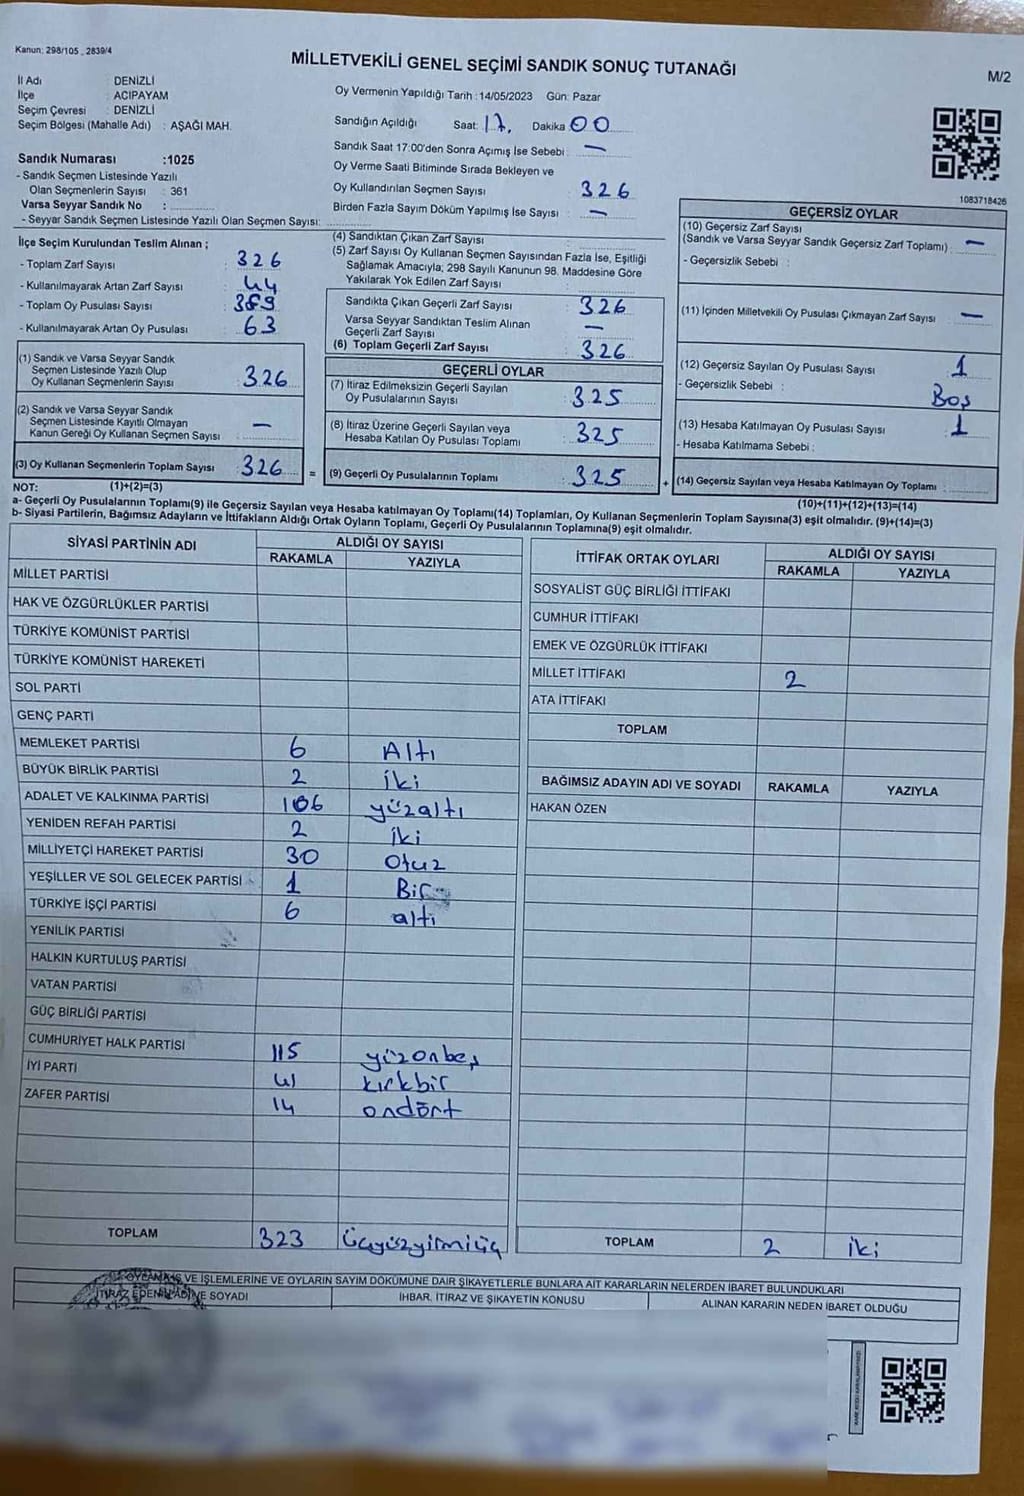 Kanun: 298/105 _ 2839/4
MİLLETVEKİLİ GENEL SEÇİMİ SANDIK SONUÇ TUTANAĞI
M/2
İl Adı : DENİZLİ
İlçe : ACIPAYAM
Seçim Çevresi : DENİZLİ
Seçim Bölgesi (Mahalle Adı) : AŞAĞI MAH.
Sandık Numarası :1025
- Sandık Seçmen Listesinde Yazılı
Olan Seçmenlerin Sayısı : 361
Varsa Seyyar Sandık No :
- Seyyar Sandık Seçmen Listesinde Yazılı Olan Seçmen Sayısı:
Oy Vermenin Yapıldığı Tarih :14/05/2023 Gün: Pazar
Sandığın Açıldığı Saat: 17. Dakika 00
Sandık Saat 17:00'den Sonra Açımış İse Sebebi : —
Oy Verme Saati Bitiminde Sırada Bekleyen ve
Oy Kullandırılan Seçmen Sayısı : 326
Birden Fazla Sayım Döküm Yapılmış İse Sayısı : —
1083718426
İlçe Seçim Kurulundan Teslim Alınan ;
- Toplam Zarf Sayısı : 326
- Kullanılmayarak Artan Zarf Sayısı : 44
- Toplam Oy Pusulası Sayısı : 389
- Kullanılmayarak Artan Oy Pusulası : 63
(1) Sandık ve Varsa Seyyar Sandık
Seçmen Listesinde Yazılı Olup
Oy Kullanan Seçmenlerin Sayısı : 326
(2) Sandık ve Varsa Seyyar Sandık
Seçmen Listesinde Kayıtlı Olmayan
Kanun Gereği Oy Kullanan Seçmen Sayısı : —
(3) Oy Kullanan Seçmenlerin Toplam Sayısı : 326 =
(4) Sandıktan Çıkan Zarf Sayısı :
(5) Zarf Sayısı Oy Kullanan Seçmen Sayısından Fazla İse, Eşitliği
Sağlamak Amacıyla; 298 Sayılı Kanunun 98. Maddesine Göre
Yakılarak Yok Edilen Zarf Sayısı :
Sandıkta Çıkan Geçerli Zarf Sayısı : 326
Varsa Seyyar Sandıktan Teslim Alınan
Geçerli Zarf Sayısı : —
(6) Toplam Geçerli Zarf Sayısı : 326
GEÇERLİ OYLAR
(7) İtiraz Edilmeksizin Geçerli Sayılan
Oy Pusulalarının Sayısı : 325
(8) İtiraz Üzerine Geçerli Sayılan veya
Hesaba Katılan Oy Pusulası Toplamı : 325
(9) Geçerli Oy Pusulalarının Toplamı : 325 +
GEÇERSİZ OYLAR
(10) Geçersiz Zarf Sayısı
(Sandık ve Varsa Seyyar Sandık Geçersiz Zarf Toplamı) : —
- Geçersizlik Sebebi :
(11) İçinden Milletvekili Oy Pusulası Çıkmayan Zarf Sayısı : —
(12) Geçersiz Sayılan Oy Pusulası Sayısı : 1
- Geçersizlik Sebebi : Boş
(13) Hesaba Katılmayan Oy Pusulası Sayısı : 1
- Hesaba Katılmama Sebebi :
(14) Geçersiz Sayılan veya Hesaba Katılmayan Oy Toplamı :
NOT: (1)+(2)=(3)
(10)+(11)+(12)+(13)=(14)
a- Geçerli Oy Pusulalarının Toplamı(9) ile Geçersiz Sayılan veya Hesaba katılmayan Oy Toplamı(14) Toplamları, Oy Kullanan Seçmenlerin Toplam Sayısına(3) eşit olmalıdır. (9)+(14)=(3)
b- Siyasi Partilerin, Bağımsız Adayların ve İttifakların Aldığı Ortak Oyların Toplamı, Geçerli Oy Pusulalarının Toplamına(9) eşit olmalıdır.
SİYASİ PARTİNİN ADI ALDIĞI OY SAYISI
RAKAMLA YAZIYLA
MİLLET PARTİSİ
HAK VE ÖZGÜRLÜKLER PARTİSİ
TÜRKİYE KOMÜNİST PARTİSİ
TÜRKİYE KOMÜNİST HAREKETİ
SOL PARTİ
GENÇ PARTİ
MEMLEKET PARTİSİ 6 Altı
BÜYÜK BİRLİK PARTİSİ 2 iki
ADALET VE KALKINMA PARTİSİ 106 yüzaltı
YENİDEN REFAH PARTİSİ 2 iki
MİLLİYETÇİ HAREKET PARTİSİ 30 otuz
YEŞİLLER VE SOL GELECEK PARTİSİ 1 Bir
TÜRKİYE İŞÇİ PARTİSİ 6 altı
YENİLİK PARTİSİ
HALKIN KURTULUŞ PARTİSİ
VATAN PARTİSİ
GÜÇ BİRLİĞİ PARTİSİ
CUMHURİYET HALK PARTİSİ 115 yüzonbeş
İYİ PARTİ 41 kırkbir
ZAFER PARTİSİ 14 ondört
TOPLAM 323 üçyüzyirmiüç
İTTİFAK ORTAK OYLARI ALDIĞI OY SAYISI
RAKAMLA YAZIYLA
SOSYALİST GÜÇ BİRLİĞİ İTTİFAKI
CUMHUR İTTİFAKI
EMEK VE ÖZGÜRLÜK İTTİFAKI
MİLLET İTTİFAKI 2
ATA İTTİFAKI
TOPLAM
BAĞIMSIZ ADAYIN ADI VE SOYADI RAKAMLA YAZIYLA
HAKAN ÖZEN
TOPLAM 2 iki
VE İŞLEMLERİNE VE OYLARIN SAYIM DÖKÜMÜNE DAİR ŞİKAYETLERLE BUNLARA AİT KARARLARIN NELERDEN İBARET BULUNDUKLARI
İTİRAZ EDENİN ADI VE SOYADI İHBAR, İTİRAZ VE ŞİKAYETİN KONUSU ALINAN KARARIN NEDEN İBARET OLDUĞU